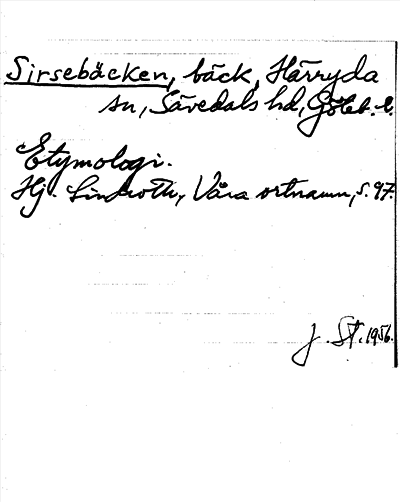 Sirsebäcken, bäck, Härryda
sn, Sävedals hd, Göteb. l.
Etymologi.
Hj. Lindroth, Våra ortnamn, s. 97.
J. St. 1956.